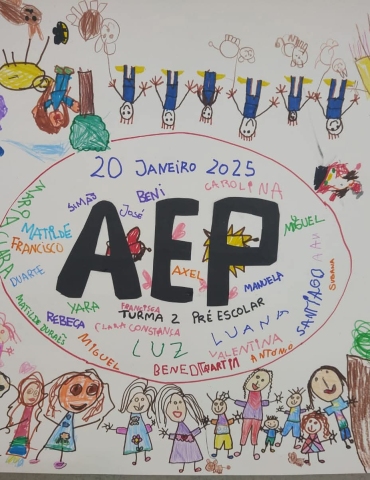 20 JANEIRO 2025
SIMÃO
BENI
CAROLINA
JOSÉ
MATILDE
MIGUEL
FRANCISCO
AEP
DUARTE
AXEL
MANUELA
SANTIAGO
SUSANA
YARA
FRANCISCA
MATILDE DURÃES
REBECA
TURMA 2 PRÉ ESCOLAR
CLARA CONSTANÇA
LUANA
MIGUEL
LUZ
VALENTINA
ANTÓNIO
BENEDITA
MARTIM